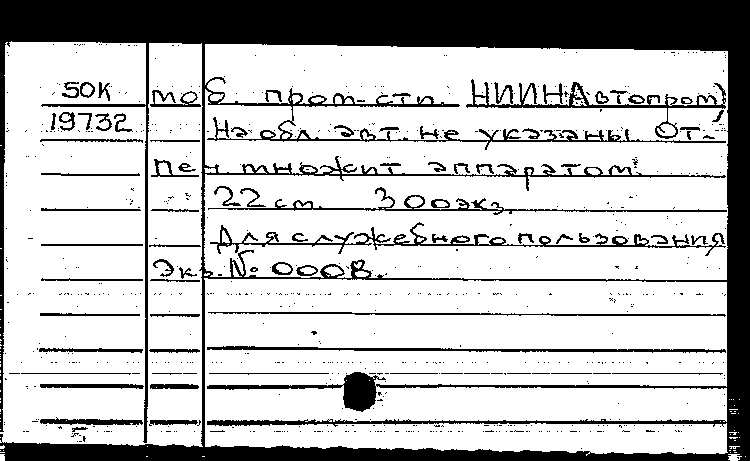 50К моб. пром-сти. НИИНАвтопром)
19732 На обл. авт. не указаны. От-
печ. множит. аппаратом.
22 см. 300 экз.
Для служебного пользования
Экз. №: 000В.